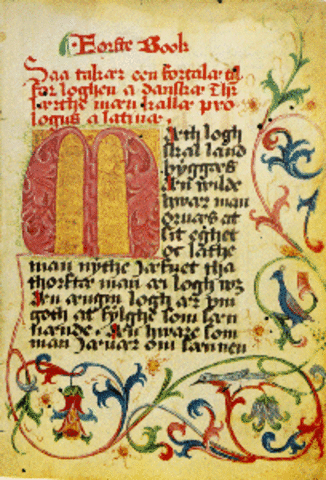 Første Book
Saa takær een fortalæ til
før loghen a danskæ Thr
lærthæ mæn kallæ pro
logus a latinæ.
Mæth logh
skal land
byggæs
Æn wilde
hwar man
oruæs at
sit eghet
oc lathæ
man nythe iæfnet tha
thorftæ man æi logh wz
Æn ængin logh ær vm
goth at fylghe som sæn
nænde. Æn hware som
man iæuær om sannen